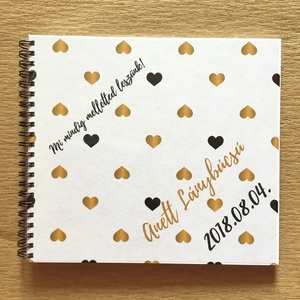 Mi mindig melletted leszünk!
Anett Lánybúcsú
2018.08.04.